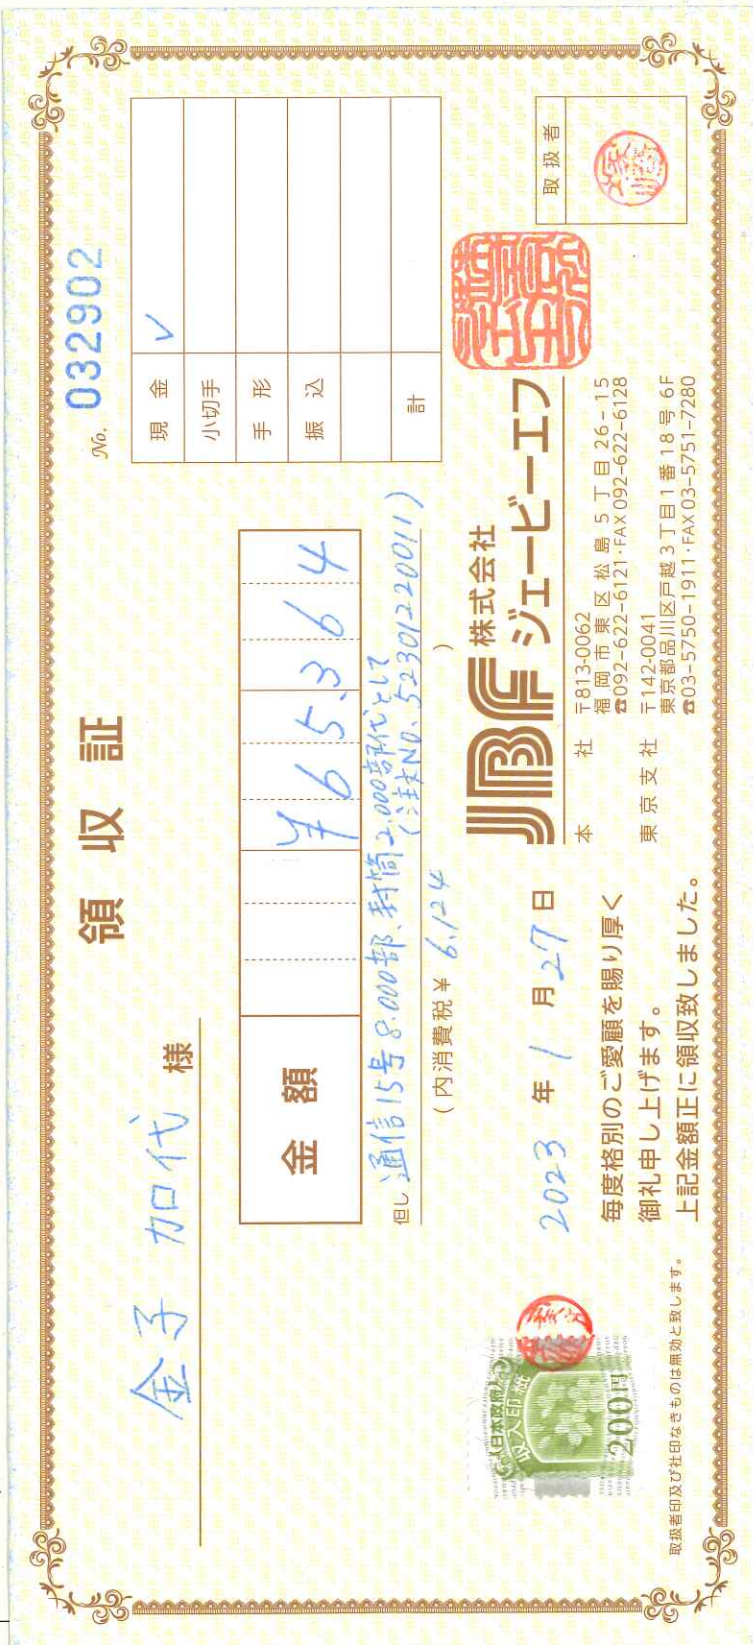 No. 032902
領収証
金子 加代 様
金額 ¥65.364
但し 通信15号8.000部、封筒2.000部代として
(注文NO. S2301220011)
(内消費税¥ 6.124 )
現金 ✓
小切手
手形
振込
計
2023年1月27日
毎度格別のご愛顧を賜り厚く
御礼申し上げます。
上記金額正に領収致しました。
JBF 株式会社
ジェービーエフ
本社 〒813-0062
福岡市東区松島5丁目26-15
☎092-622-6121・FAX092-622-6128
東京支社 〒142-0041
東京都品川区戸越3丁目1番18号6F
☎03-5750-1911・FAX03-5751-7280
取扱者
日本政府
収入印紙
200円
取扱者印及び社印なきものは無効と致します。